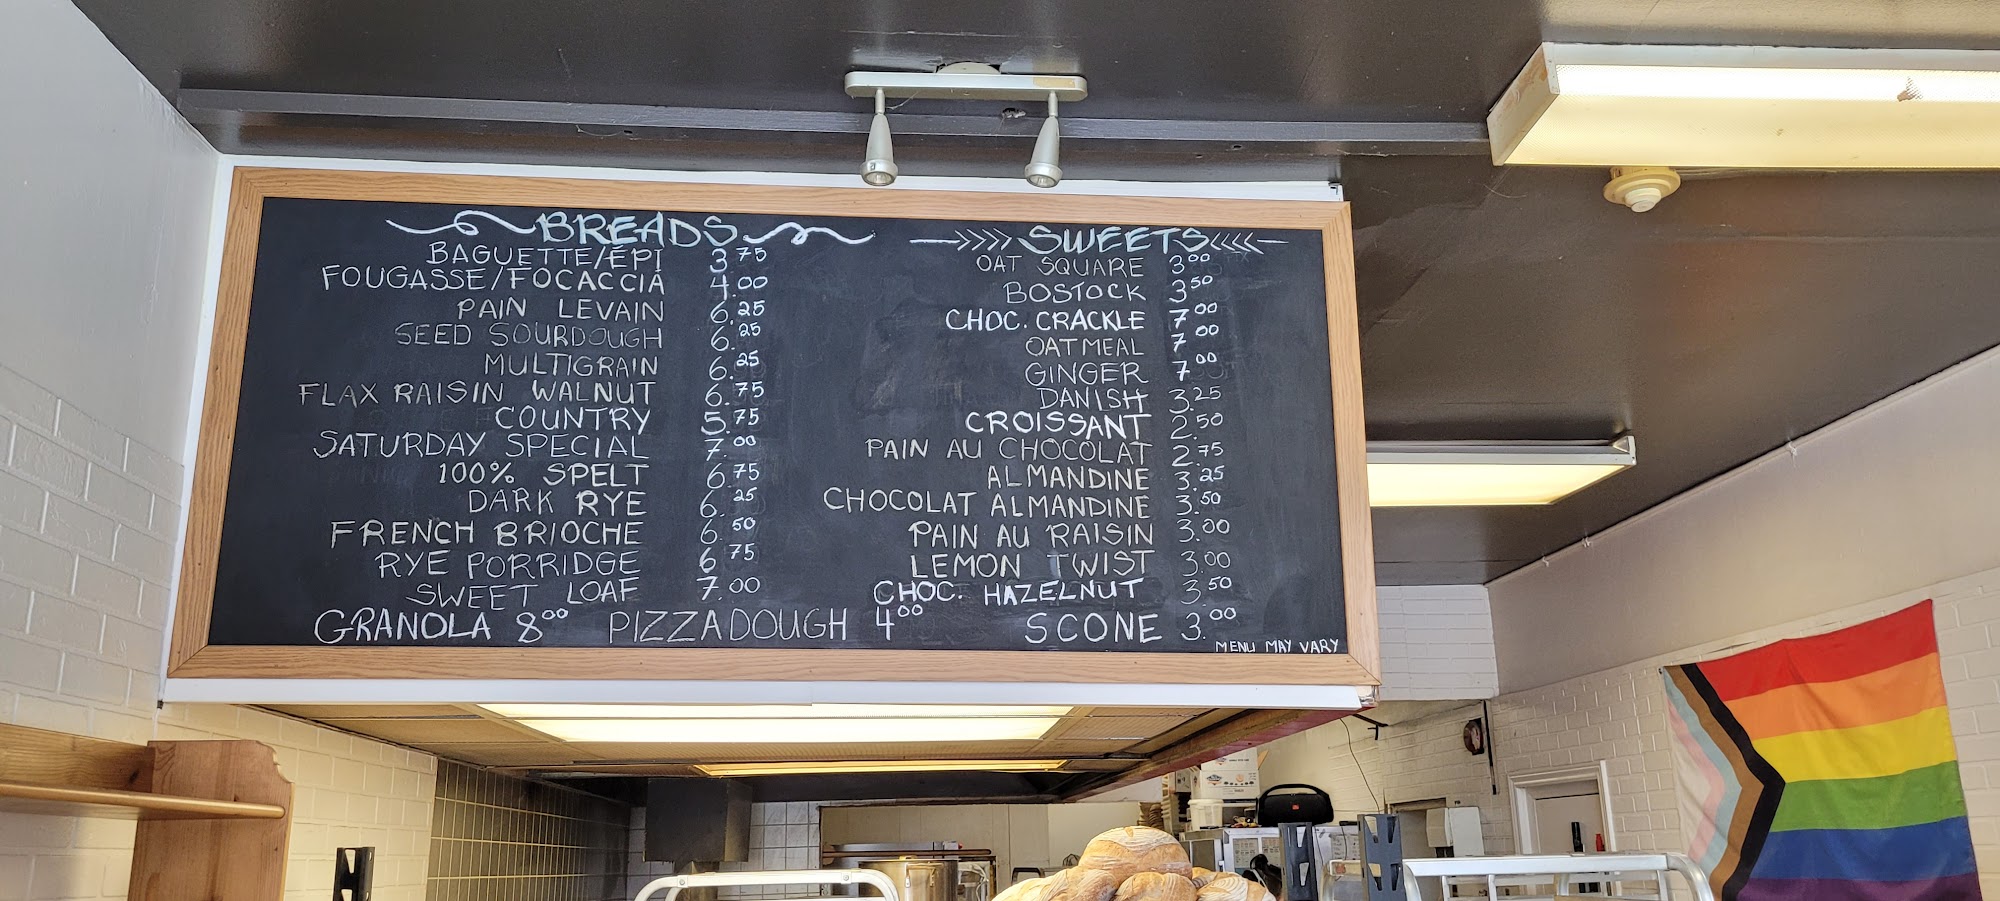 BREADS
BAGUETTE/ÉPI 3.75
FOUGASSE/FOCACCIA 4.00
PAIN LEVAIN 6.25
SEED SOURDOUGH 6.25
MULTIGRAIN 6.25
FLAX RAISIN WALNUT 6.75
COUNTRY 5.75
SATURDAY SPECIAL 7.00
100% SPELT 6.75
DARK RYE 6.25
FRENCH BRIOCHE 6.50
RYE PORRIDGE 6.75
SWEET LOAF 7.00
SWEETS
OAT SQUARE 3.00
BOSTOCK 3.50
CHOC. CRACKLE 7.00
OATMEAL 7.00
GINGER 7.00
DANISH 3.25
CROISSANT 2.50
PAIN AU CHOCOLAT 2.75
ALMANDINE 3.25
CHOCOLAT ALMANDINE 3.50
PAIN AU RAISIN 3.00
LEMON TWIST 3.00
CHOC. HAZELNUT 3.50
GRANOLA 8.00 PIZZA DOUGH 4.00 SCONE 3.00
MENU MAY VARY